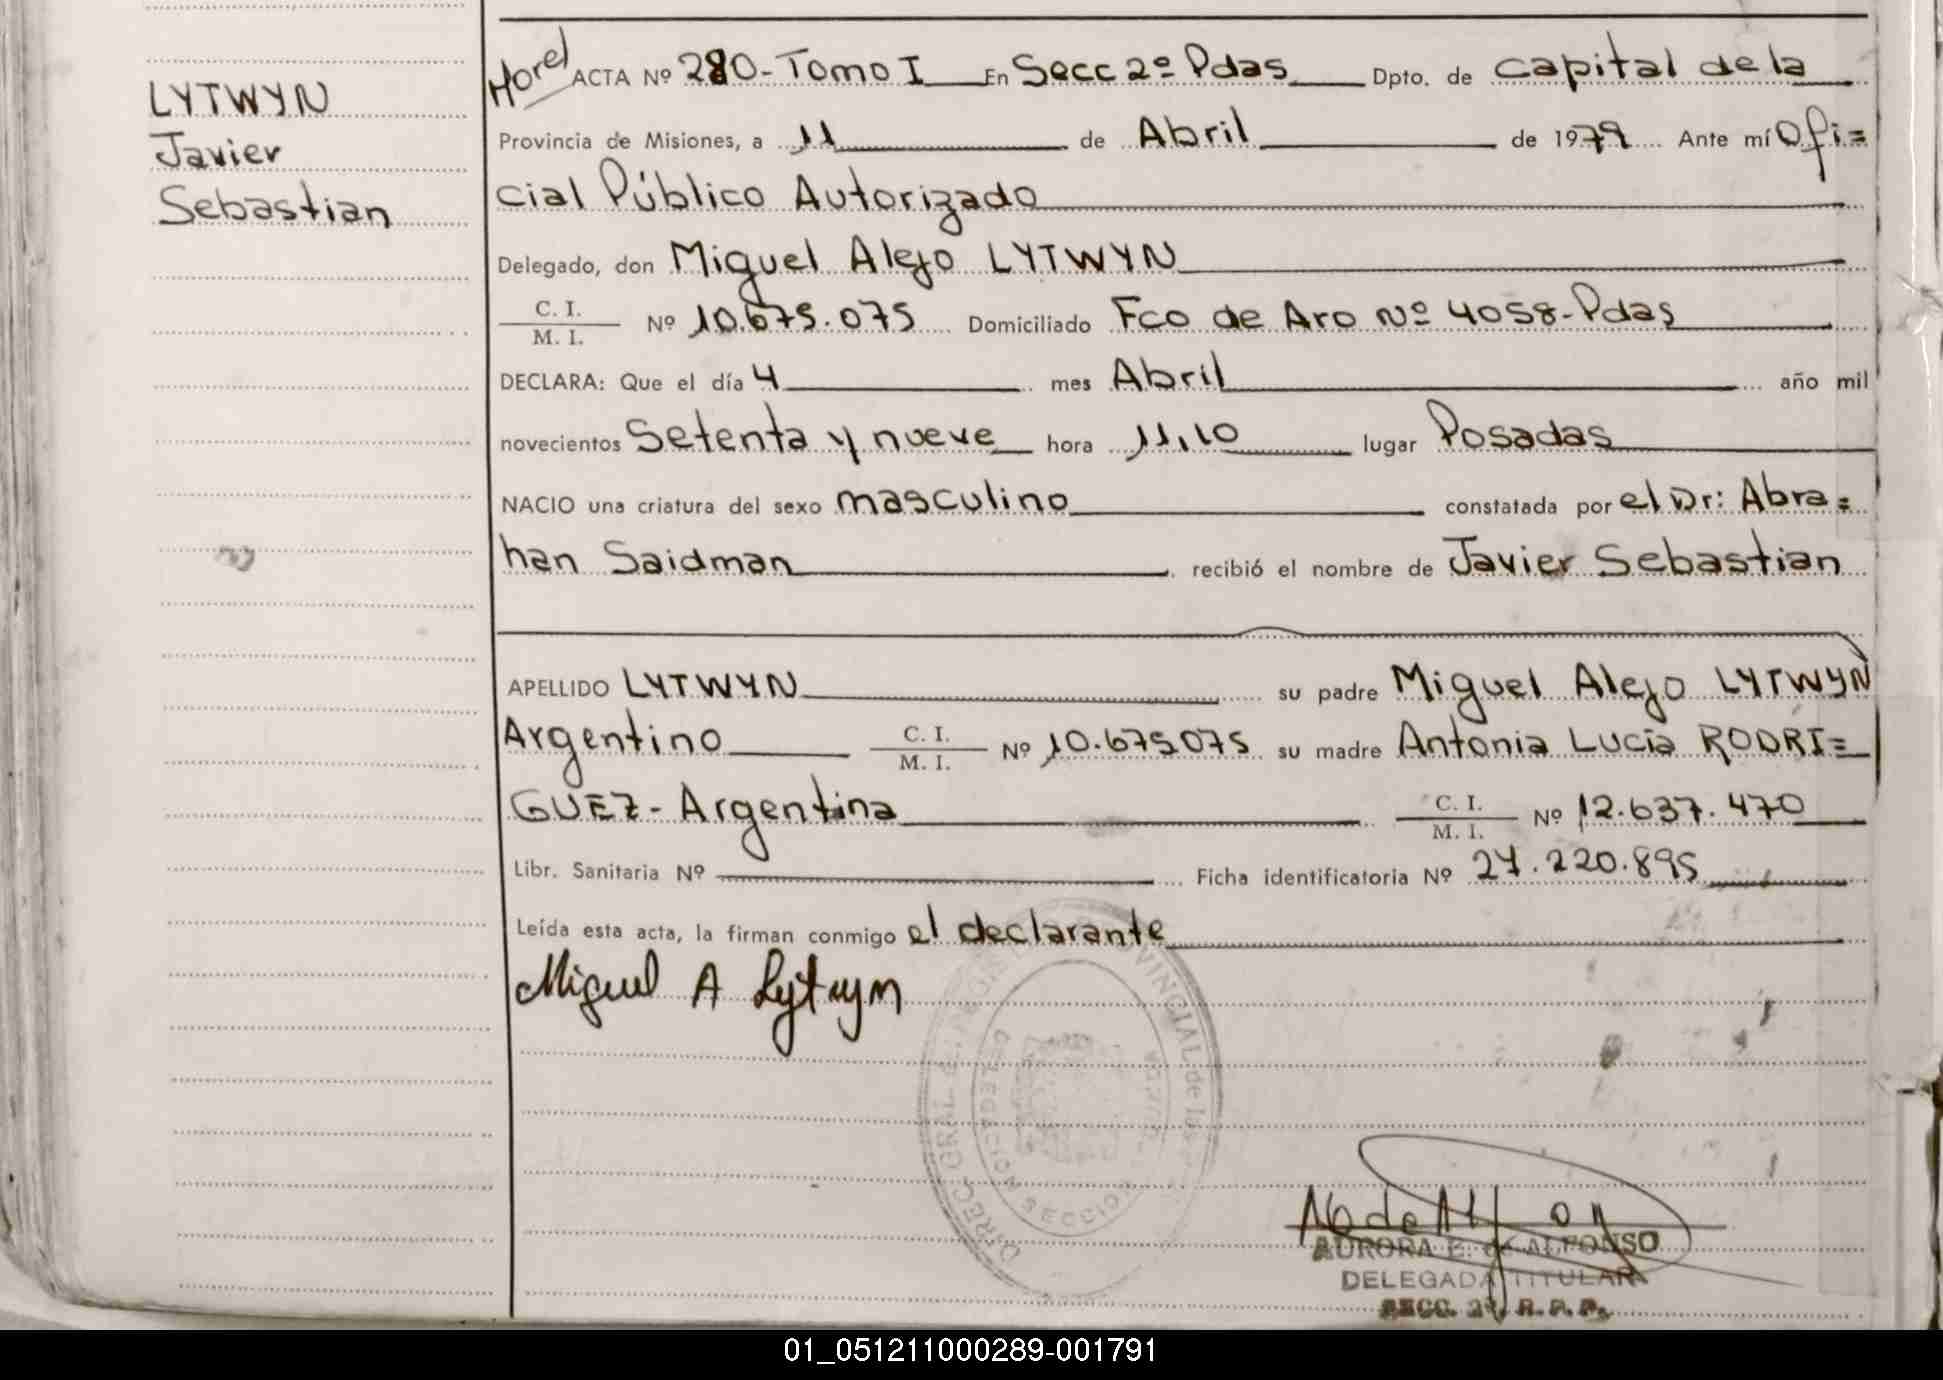 LYTWYN
Javier
Sebastian
ACTA Nº 280-Tomo I En Secc 2º Pdas Dpto. de Capital de la
Provincia de Misiones, a 11 de Abril de 1979 Ante mí Ofi=
cial Público Autorizado
Delegado, don Miguel Alejo LYTWYN
C. I.
M. I. Nº 10.675.075 Domiciliado Fco de Aro Nº 4058-Pdas
DECLARA: Que el día 4 mes Abril año mil
novecientos Setenta y nueve hora 11,10 lugar Posadas
NACIO una criatura del sexo masculino constatada por el Dr: Abra=
han Saidman recibió el nombre de Javier Sebastian
APELLIDO LYTWYN su padre Miguel Alejo LYTWYN
Argentino C. I. M. I. Nº 10.675075 su madre Antonia Lucía RODRI=
GUEZ-Argentina C. I. M. I. Nº 12.637.470
Libr. Sanitaria Nº Ficha identificatoria Nº 27.220.895
Leída esta acta, la firman conmigo el declarante
Miguel A Lytwyn
DIREC. GRAL PROVINCIAL de las
DELEGACION SECCION
AURORA E. de ALFONSO
DELEGADA TITULAR
SECC. 2ª R.P.P.
01_051211000289-001791